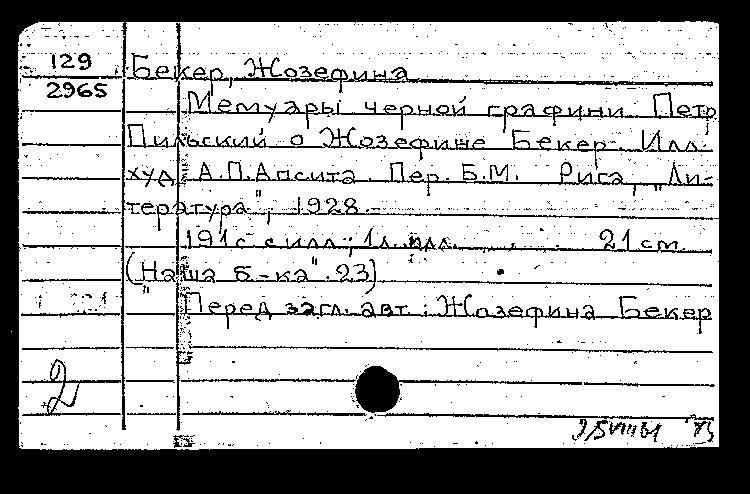 129
2965
Бекер, Жозефина
Мемуары черной графини. Петр
Пильский о Жозефине Бекер. Илл.
худ. А.П.Апсита. Пер. Б.М. Рига, „Ли-
тература", 1928.-
191 с. с илл.; 1 л. илл. 21 cm.
(„Наша б-ка". 23)
Перед загл. авт.: Жозефина Бекер
2